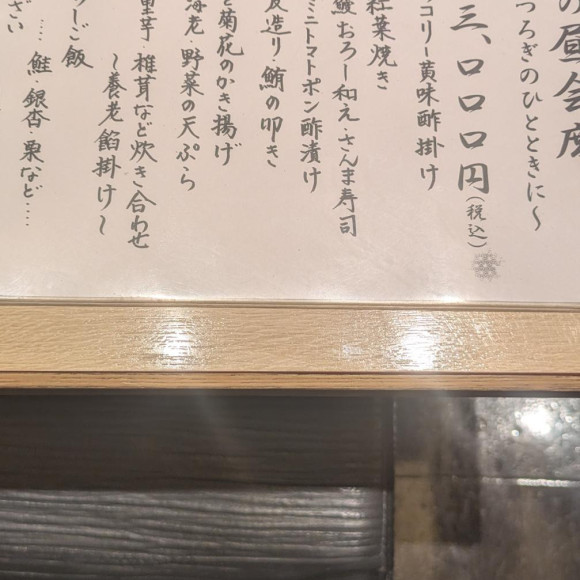 の昼会席
つろぎのひとときに〜
三、〇〇〇円(税込)
コリー黄味酢掛け
紅葉焼き
鰻おろし和え・さんま寿司
ミニトマトポン酢漬け
造り・鮪の叩き
と菊花のかき揚げ
海老・野菜の天ぷら
里芋・椎茸など炊き合わせ
〜養老餡掛け〜
ご飯
‥‥鮭・銀杏・栗など‥‥
ざい